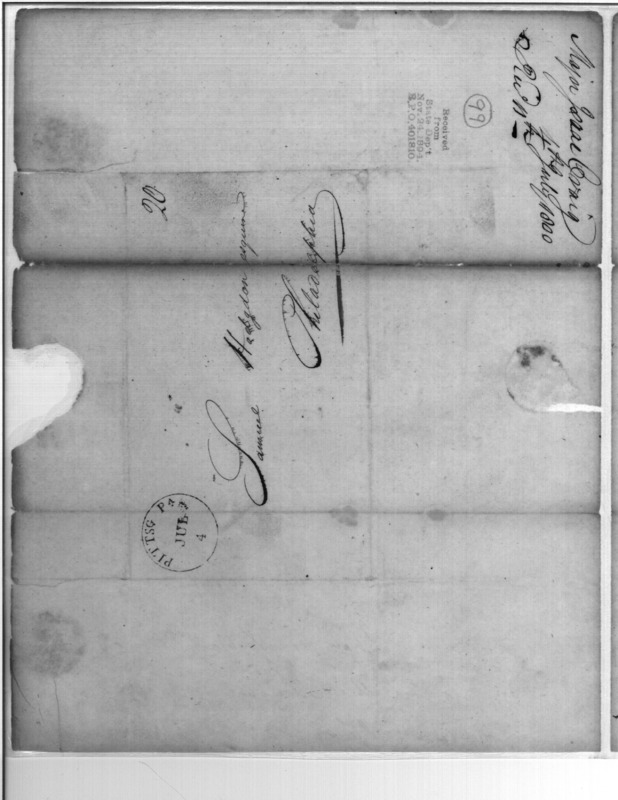 Major Isaac Craig
4th July 1800
99
Received
from
State Dep't
Nov. 24, 1894.
R.P.O. 401810.
20
Samuel Hodgdon esquire
Philadelphia
PITTSG Pa
JUL
4